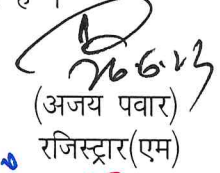 26.6.23
(अजय पवार)
रजिस्ट्रार(एम)